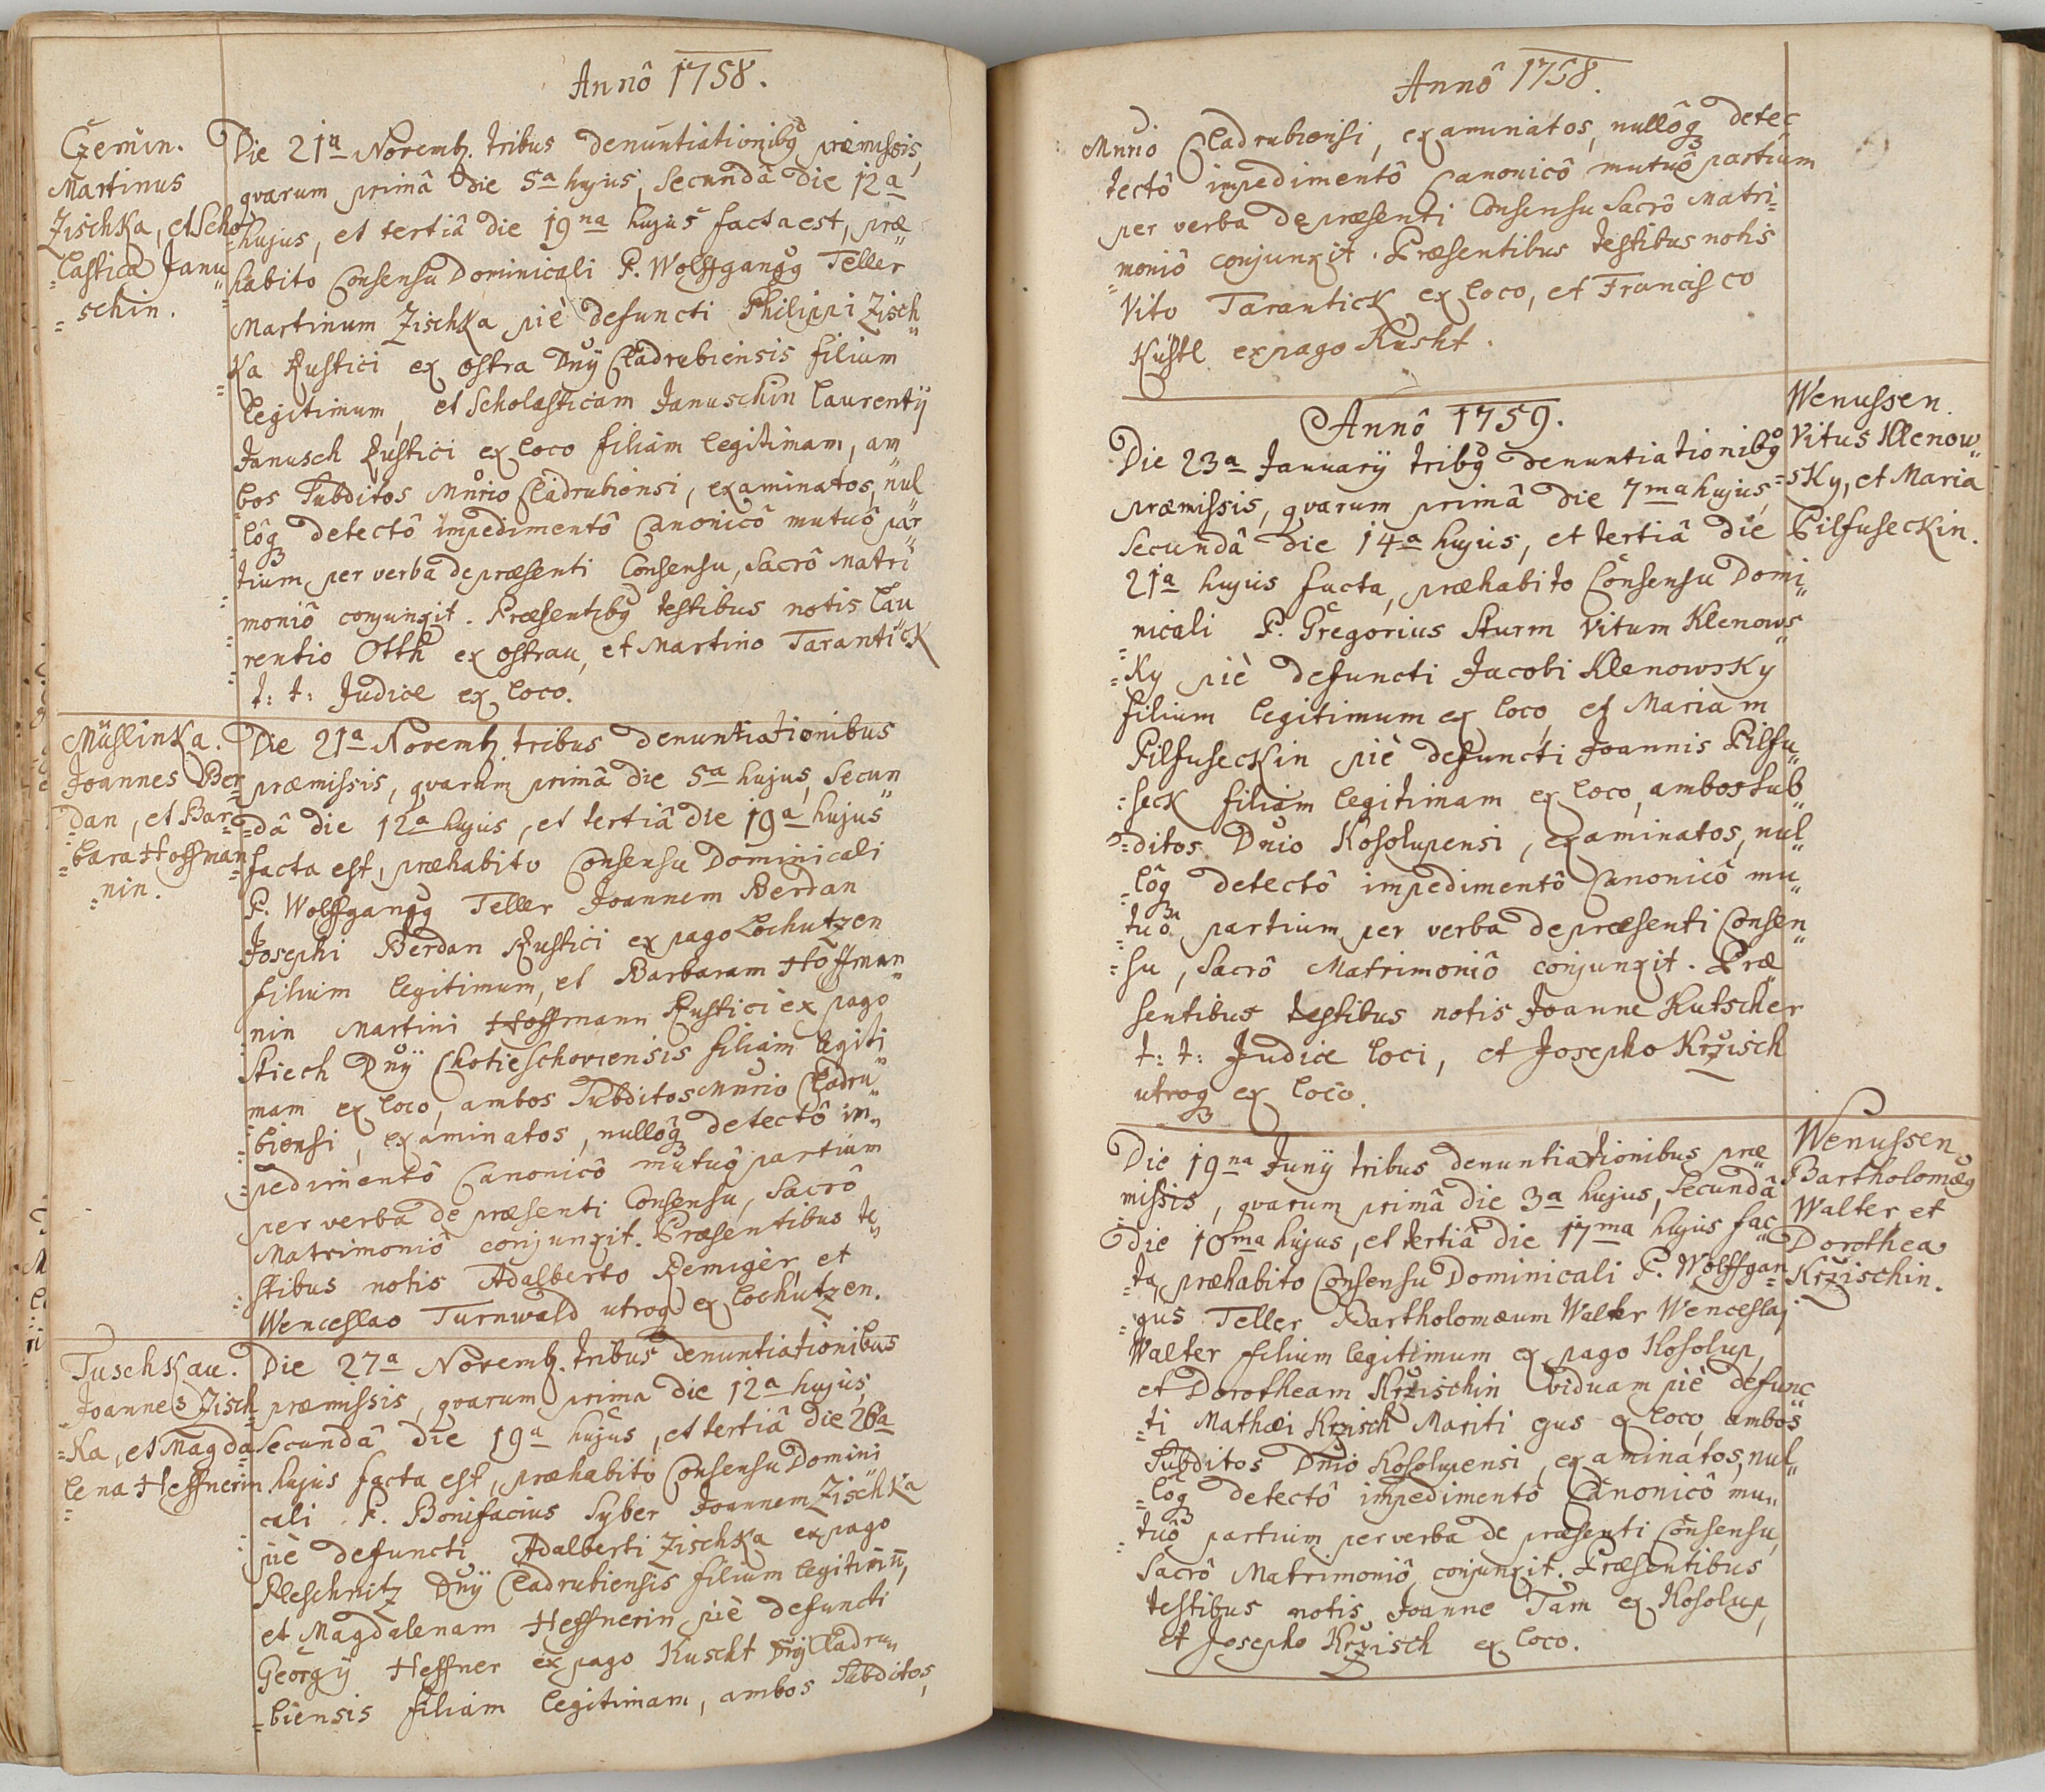 Annô 1758.
Czemin.
Martinus
Zischka, et Scho
=lastica Janu
=schin.
Die 21a Novemb. tribus denuntiationibq præmissis,
qvarum primâ die 5a hujus, Secundâ die 12a
hujus, et tertiâ die 19na hujus facta est, præ
habito Consensu Dominicali P. Wolffgangq Teller
Martinum Zischka piè defuncti Philippi Zisch
ka Rustici ex ostra Dnÿ Cladrubiensis filium
legitimum, et Scholasticam Januschin Laurentÿ
Janusch Rustici ex loco filiam legitimam, am
bos Subditos Mnrio Cladrubiensi, examinatos, nul
lôq detectô impedimentô Canonicô mutuô par
tium per verba de præsenti Consensu, Sacrô Matri
moniô conjunxit. Præsentibq testibus notis Lau
rentio Otth ex ostrau, et Martino Tarantick
t: t: Judice ex loco.
Müslinka.
Joannes Ber
dan, et Bar=
=bara Hoffman
=nin.
Die 21a Novemb. tribus denuntiationibus
præmissis, qvarum primâ die 5a hujus, Secun
=dâ die 12a hujus, et tertiâ die 19a hujus
facta est, præhabito Consensu Dominicali
P. Wolffgangq Teller Joannem Berdan
Josephi Berdan Rustici ex pago Lochutzen
filium legitimum, et Barbaram Hoffman
nin Martini Hoffmann Rustici ex pago
Stiech Dnÿ Chotieschoviensis filiam legiti
mam ex loco, ambos Subditos Mnrio Cladru
biensi, examinatos, nullôq detectô im
=pedimentô Canonicô mutuô partium
per verba de præsenti Consensu, Sacrô
Matrimoniô conjunxit. Præsentibus te
stibus notis Adalberto Remiger, et
Wenceslao Turnwald utroq ex Lochutzen.
Tuschkau.
Joannes Zisch
=ka, et Magda
lena Heffnerin
Die 27a Novemb. tribus denuntiationibus
præmissis, qvarum prima die 12a hujus,
Secundâ die 19a hujus, et tertiâ die 26a
hujus facta est, præhabito Consensu Domini
cali P. Bonifacius Syber Joannem Zischka
piè defuncti Adalberti Zischka ex pago
Pleschnitz Dnÿ Cladrubiensis filium legitimū,
et Magdalenam Heffnerin piè defuncti
Georgÿ Heffner ex pago Kuscht Dnÿ Cladru
=biensis filiam legitimam, ambos Subditos,
Annô 1758.
Mnrio Cladrubiensi, examinatos, nullôq detec
tectô impedimentô Canonicô mutuô partium
per verba de præsenti Consensu Sacrô Matri=
moniô conjunxit. Præsentibus testibus notis
Vito Tarantick ex loco, et Francisco
Küstl ex pago Kuscht.
Annô 1759.
Wenussen.
Vitus Klenow
=sky, et Maria
Pilfuseckin.
Die 23a Januarÿ tribq denuntiationibq
præmissis, qvarum primâ die 7ma hujus,
Secundâ die 14a hujus, et tertiâ die
21a hujus facta, præhabito Consensu Domi
nicali P. Gregorius Sturm Vitum Klenows
=ky piè defuncti Jacobi Klenowsky
filium legitimum ex loco, et Mariam
Pilfuseckin piè defuncti Joannis Pilfu
=seck filiam legitimam ex loco, ambos sub
=ditos Dnio Kosolupensi, examinatos, nul
=lôq detectô impedimentô Canonicô mu
=tuô partium per verba de præsenti Consen
=su, Sacrô Matrimoniô conjunxit. Præ
sentibus testibus notis Joanne Kutscher
t: t: Judice loci, et Josepho Krzisch
utroq ex loco.
Wenussen
Bartholomæq
Walter et
Dorothea
Krzischin.
Die 19na Junÿ tribus denuntiationibus præ
missis, qvarum primâ die 3a hujus, Secundâ
die 10ma hujus, et tertiâ die 17ma hujus fac
=ta, præhabito Consensu Dominicali P. Wolffgan
=gus Teller Bartholomæum Walter Wenceslaj
Walter filium legitimum ex pago Kosolup,
et Dorotheam Krzischin viduam piè defunc
=ti Mathæi Krzisch Mariti ejus ex loco, ambos
Subditos Dnio Kosolupensi, examinatos, nul
=lôq detectô impedimentô Canonicô mu
=tuô partium per verba de præsenti Consensu,
Sacrô Matrimoniô conjunxit. Præsentibus
testibus notis Joanne Tam ex Kosolup,
et Josepho Krzisch ex loco.